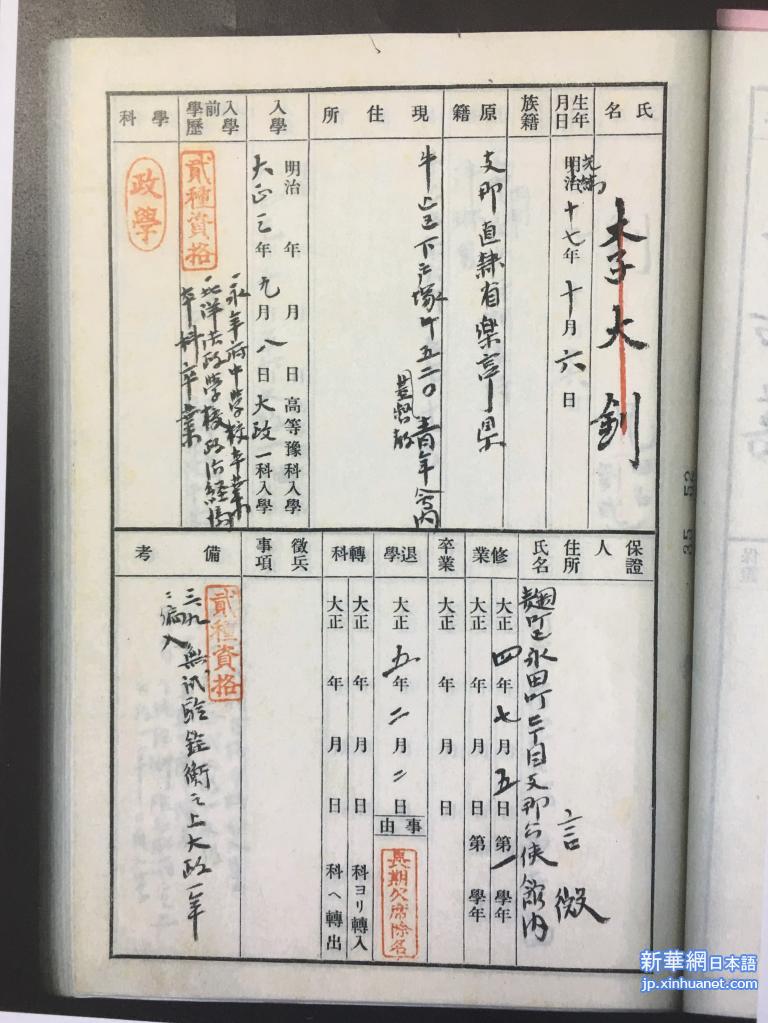 氏名
李大釗
生年月日
光緒
明治十七年十月六日
族籍
原籍
支那直隷省樂亭県
現住所
牛込区下戸塚町五二〇
基督教青年会内
入學
明治 年 月 日高等豫科入學
大正三年九月八日大政一科入學
入學前學歷
貳種資格
一、永年府中学校卒業
一、北洋法政学校政治経済
本科卒業
學科
政學
保證人
住所
氏名
麹町区永田町二丁目支那公使館内
言微
修業
大正四年七月五日第一學年
大正 年 月 日第 學年
卒業
大正 年 月 日
退學
大正五年二月二日
事由
長期欠席除名
轉科
大正 年 月 日 科ヨリ轉入
大正 年 月 日 科ヘ轉出
徵兵事項
備考
貳種資格
三、九、無試験銓衡之上大政一年
ニ編入
35 52
保證
新華網日本語
jp.xinhuanet.com